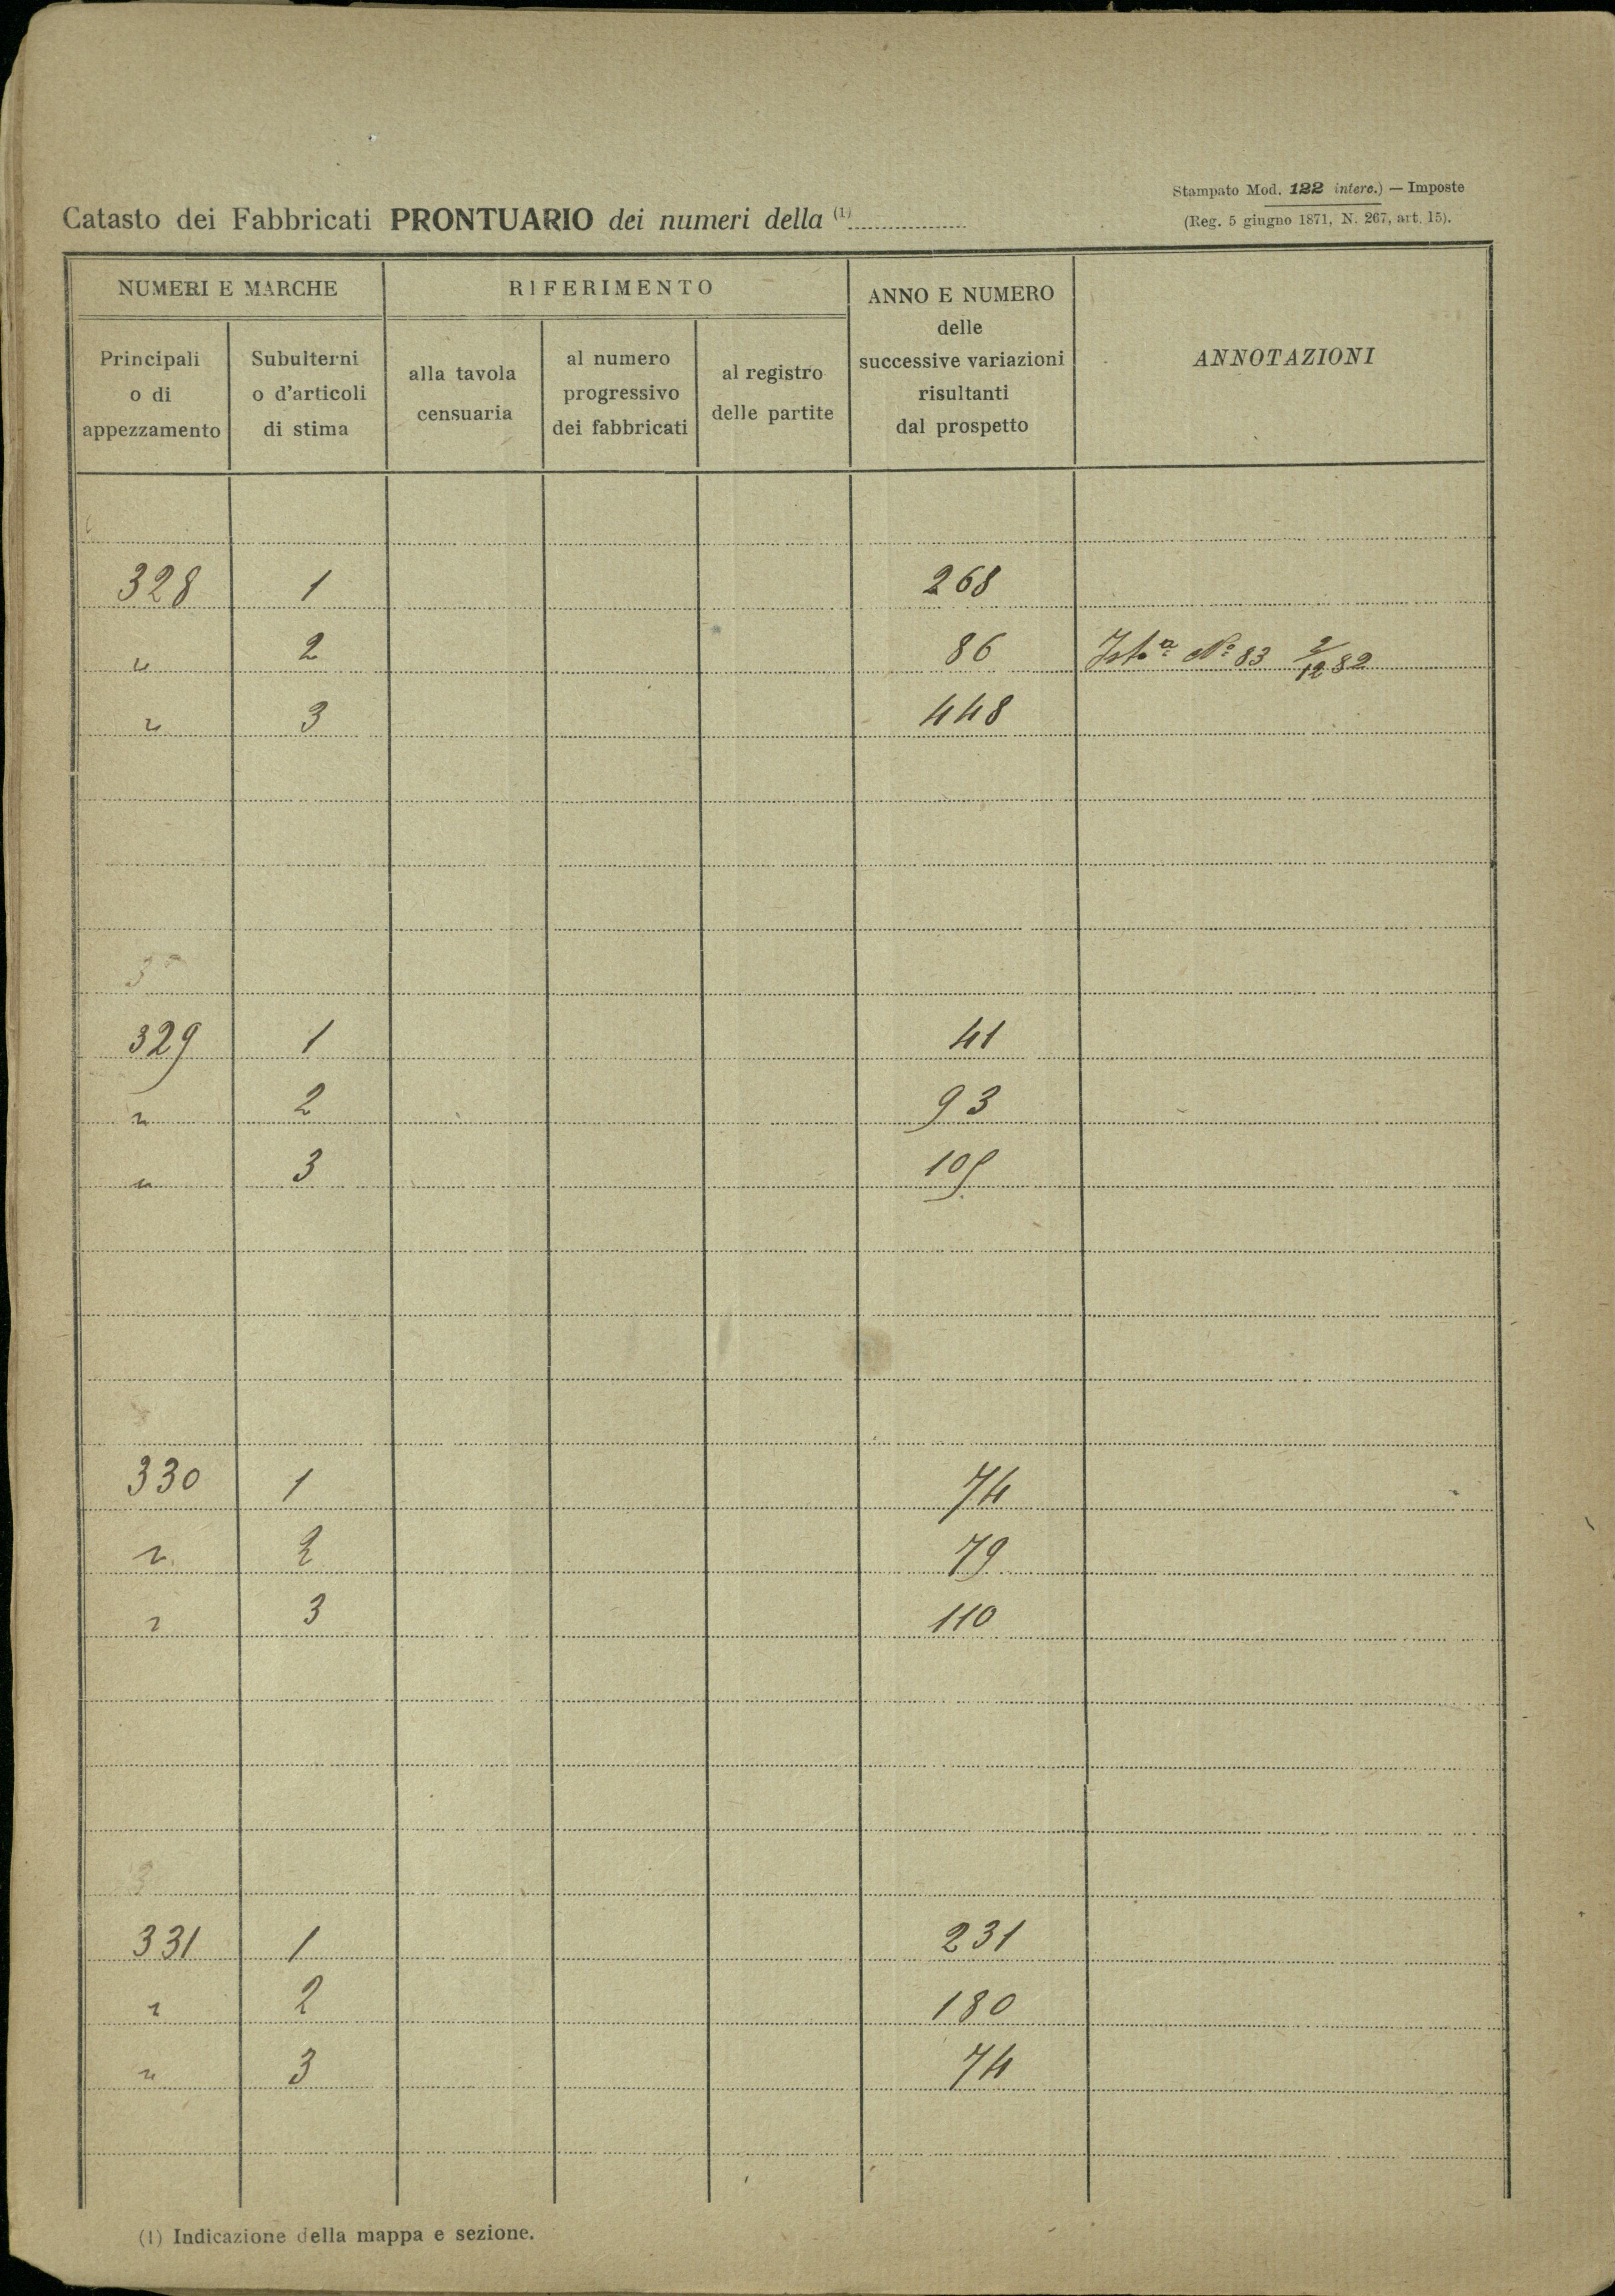 Stampato Mod. 122 interc.) — Imposte
(Reg. 5 giugno 1871, N. 267, art. 15).
Catasto dei Fabbricati PRONTUARIO dei numeri della (1)
NUMERI E MARCHE
RIFERIMENTO
ANNO E NUMERO
delle
successive variazioni
risultanti
dal prospetto
ANNOTAZIONI
Principali
o di
appezzamento
Subulterni
o d'articoli
di stima
alla tavola
censuaria
al numero
progressivo
dei fabbricati
al registro
delle partite
328 1 268
" 2 86 Nº 83 2/12 82
" 3 448
329 1 41
" 2 93
" 3 109
330 1 74
" 2 79
" 3 110
331 1 231
" 2 180
" 3 74
(1) Indicazione della mappa e sezione.